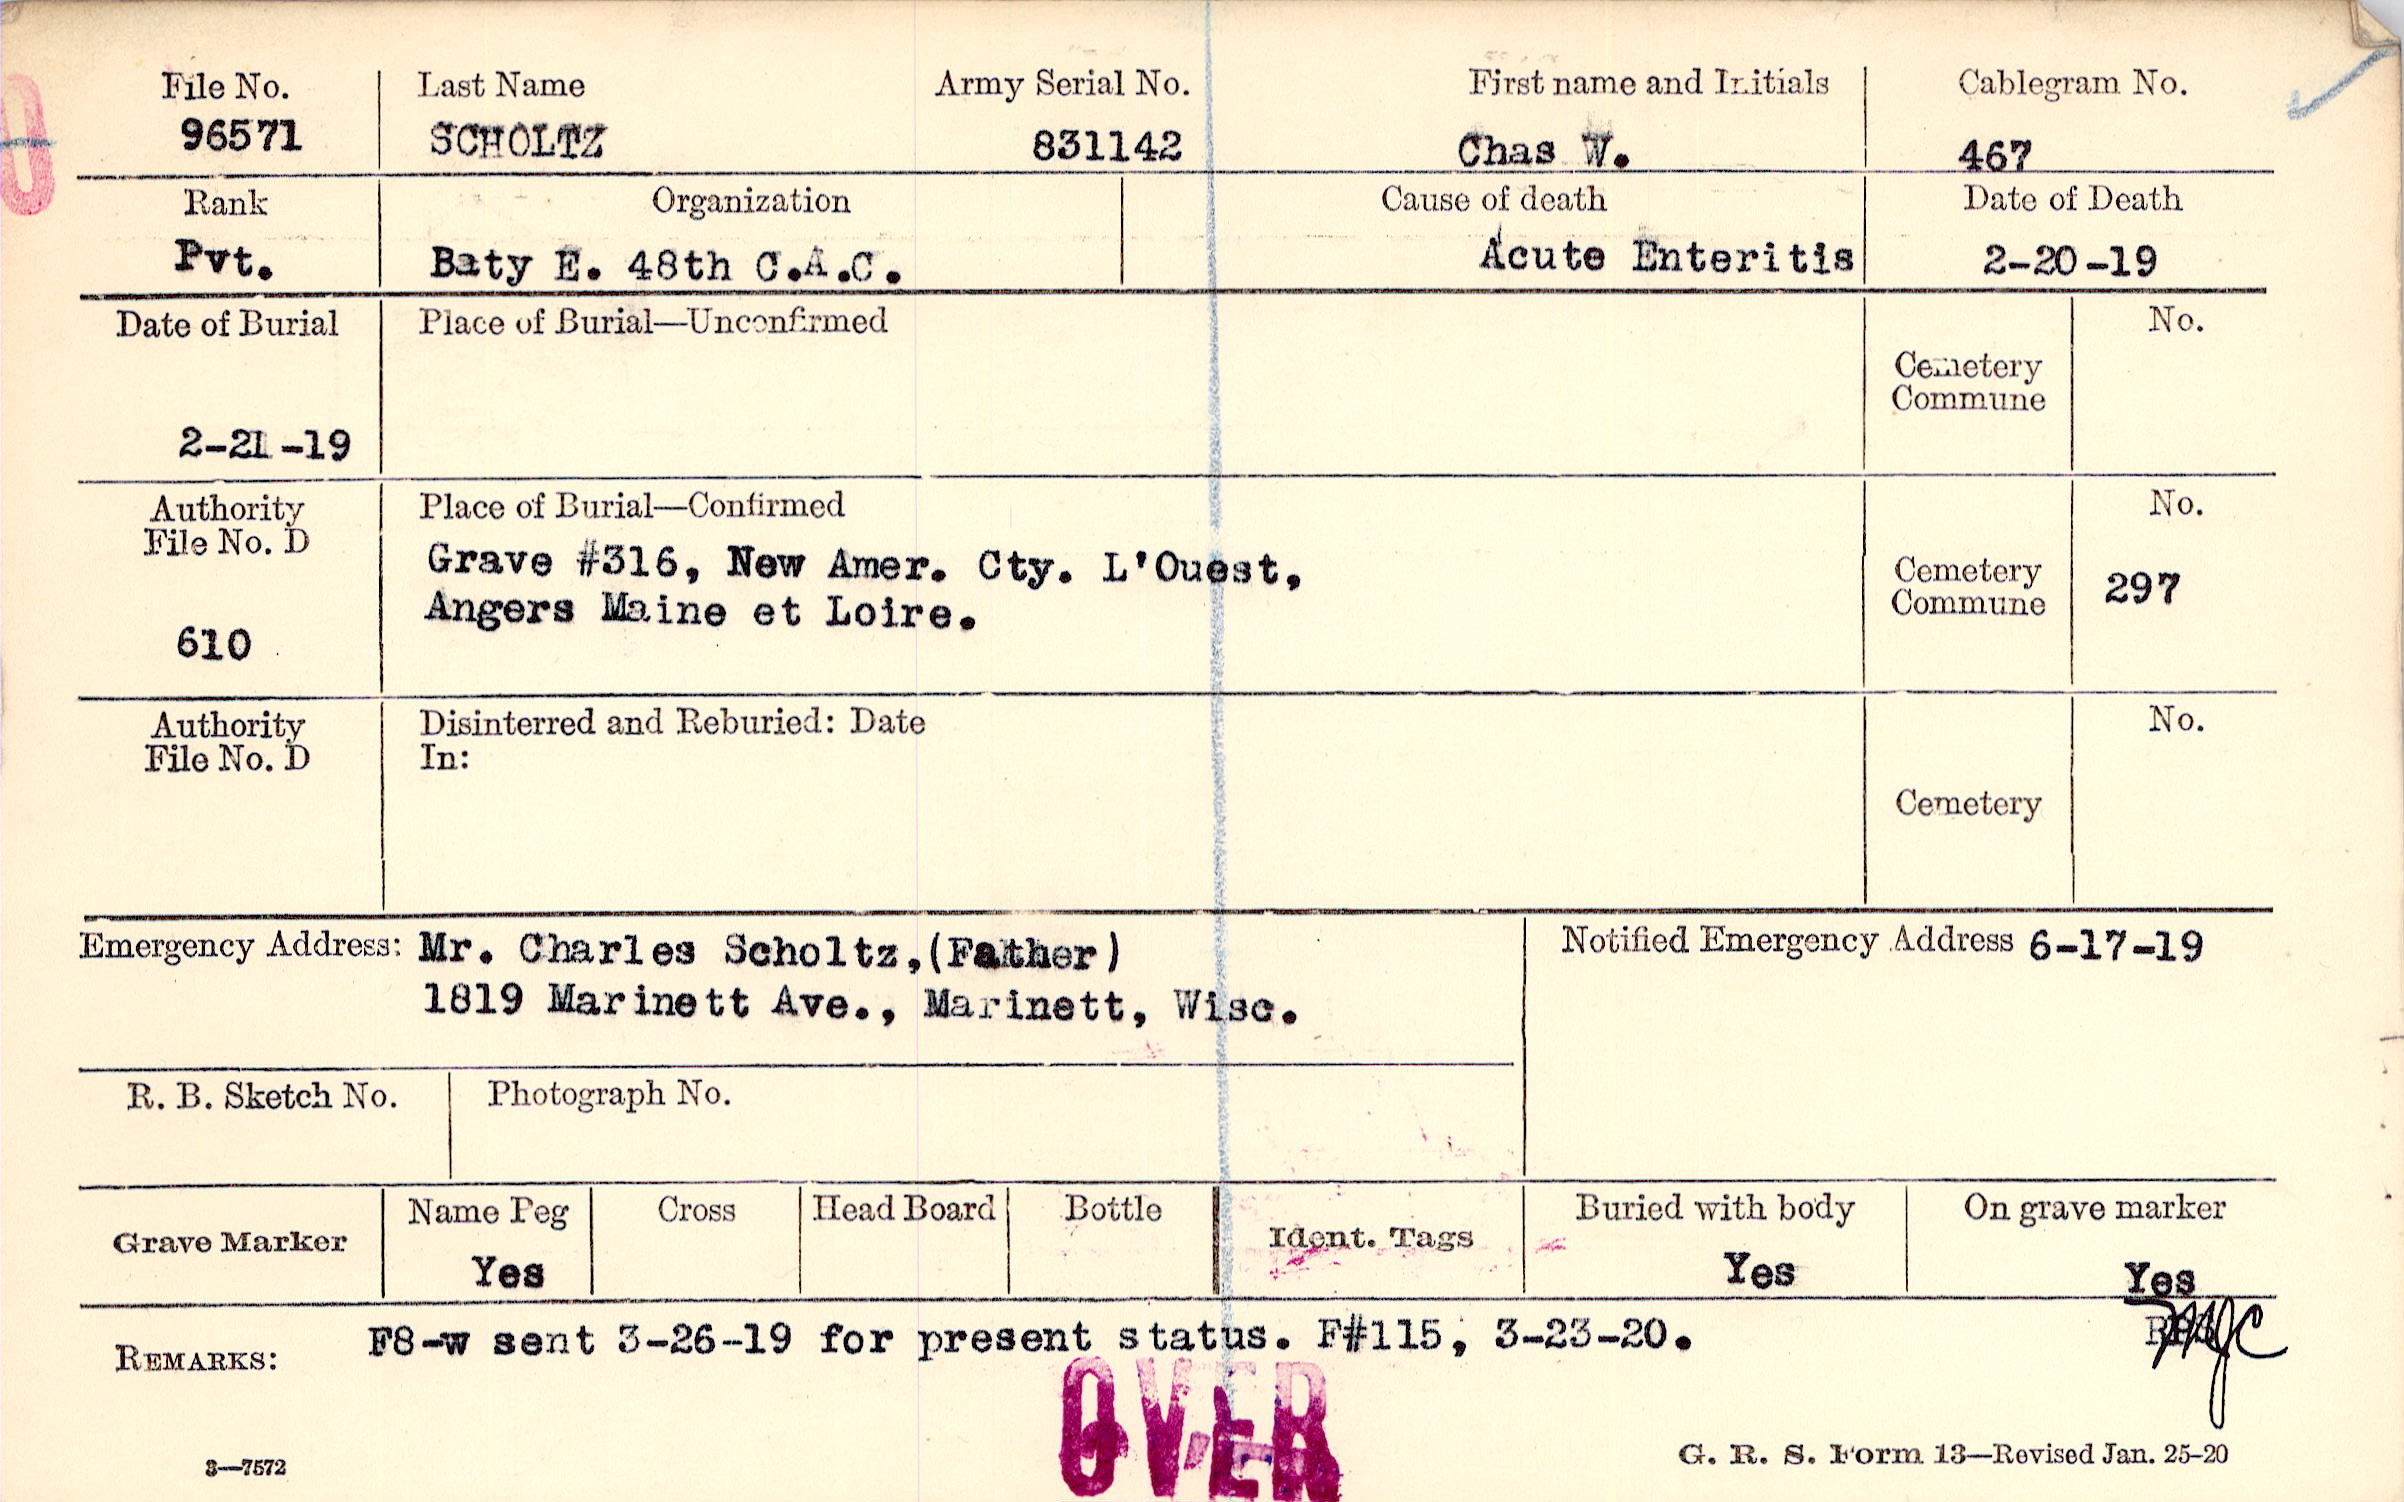 File No. Last Name Army Serial No. First name and Initials Cablegram No.
96571 SCHOLTZ 831142 Chas W. 467
Rank Organization Cause of death Date of Death
Pvt. Baty E. 48th C.A.C. Acute Enteritis 2-20-19
Date of Burial Place of Burial—Unconfirmed No.
Cemetery
Commune
2-21-19
Authority Place of Burial—Confirmed No.
File No. D
Grave #316, New Amer. Cty. L'Ouest,
Cemetery
Commune 297
Angers Maine et Loire.
610
Authority Disinterred and Reburied: Date No.
File No. D In:
Cemetery
Emergency Address: Mr. Charles Scholtz,(Father) Notified Emergency Address 6-17-19
1819 Marinett Ave., Marinett, Wisc.
R. B. Sketch No. Photograph No.
Grave Marker Name Peg Cross Head Board Bottle Ident. Tags Buried with body On grave marker
Yes Yes Yes
REMARKS: F8-w sent 3-26-19 for present status. F#115, 3-23-20.
OVER
3—7572 G. R. S. Form 13—Revised Jan. 25-20